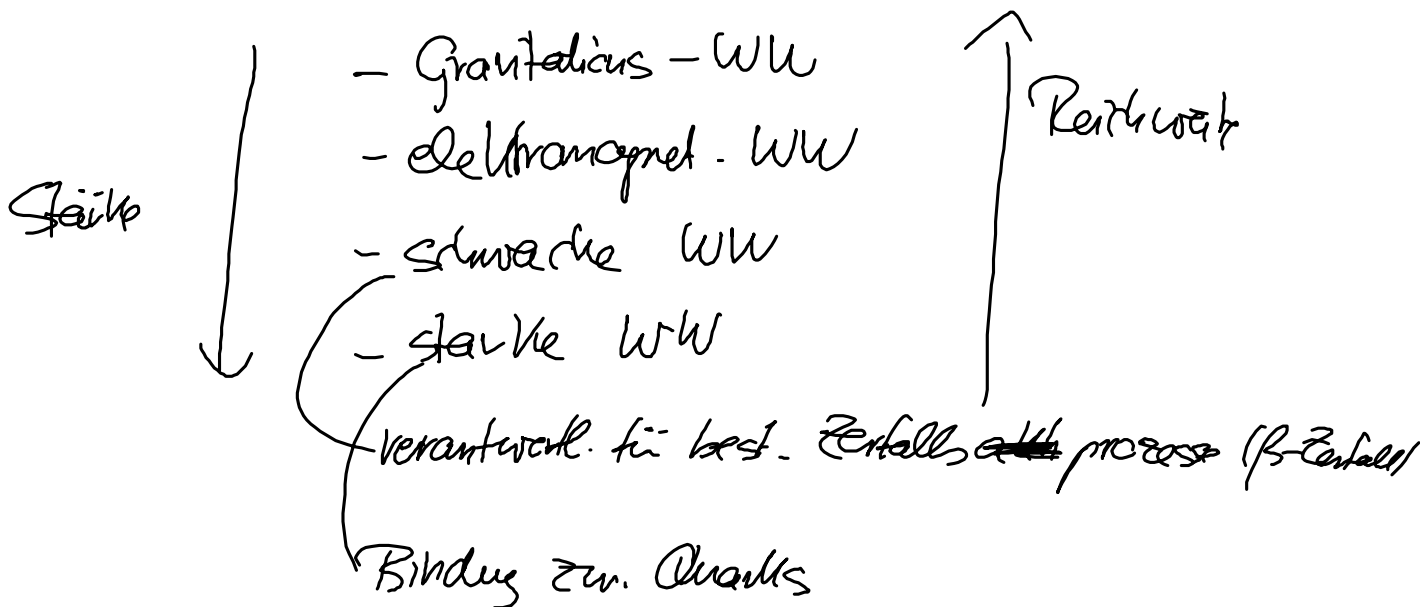 - Gravitations - WW
- elektromagnet. WW
- schwache WW
- starke WW
Stärke
Reichweite
verantwortl. für best. Zerfallsprozesse (β-Zerfall)
Bindung zw. Quarks